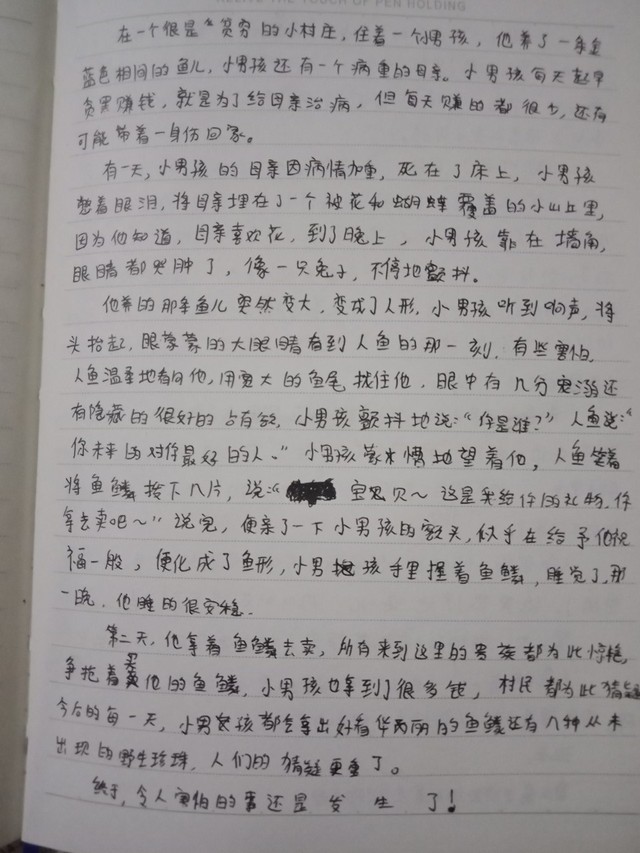 RELIVE THE TOUCH OF PEN HOLDING
在一个很是“贫穷的小村庄,住着一个男孩,他养了一条金
蓝色相间的鱼儿,小男孩还有一个病重的母亲。小男孩每天起早
贪黑赚钱,就是为了给母亲治病,但每天赚的都很少,还有
可能带着一身伤回家。
有一天,小男孩的母亲因病情加重,死在了床上,小男孩
憋着眼泪,将母亲埋在了一个被花和蝴蝶覆盖的小山丘里,
因为他知道,母亲喜欢花,到了晚上,小男孩靠在墙角,
眼睛都哭肿了,像一只兔子,不停地颤抖。
他养的那条鱼儿突然变大,变成了人形,小男孩听到响声,将
头抬起,眼蒙蒙的大眼睛看到人鱼的那一刻,有些害怕,
人鱼温柔地看向他,用宽大的鱼尾拢住他,眼中有几分宠溺还
有隐藏的很好的占有欲,小男孩颤抖地说:“你是谁?”人鱼说:“
你未来的对你最好的人。”小男孩懵懂地望着他,人鱼笑着
将鱼鳞拔下几片,说:“宝贝~这是我给你的礼物,你
拿去卖吧~”说完,便亲了一下小男孩的额头,似乎在给予他祝
福一般,便化成了鱼形,小男孩手里握着鱼鳞,睡觉了,那
一晚,他睡的很安稳.
第二天,他拿着鱼鳞去卖,所有来到这里的贵族都为此惊艳,
争抢着买他的鱼鳞,小男孩也拿到了很多钱,村民都为此猜疑
今后的每一天,小男孩都会拿出好看华而丽的鱼鳞还有几种从未
出现的野生珍珠,人们的猜疑更重了。
终于,令人害怕的事还是发生了!